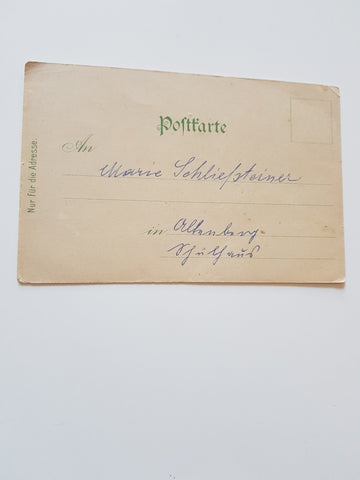 Postkarte
An
Marie Schließsteiner
in Altenberg-
Schulhaus
Nur für die Adresse.